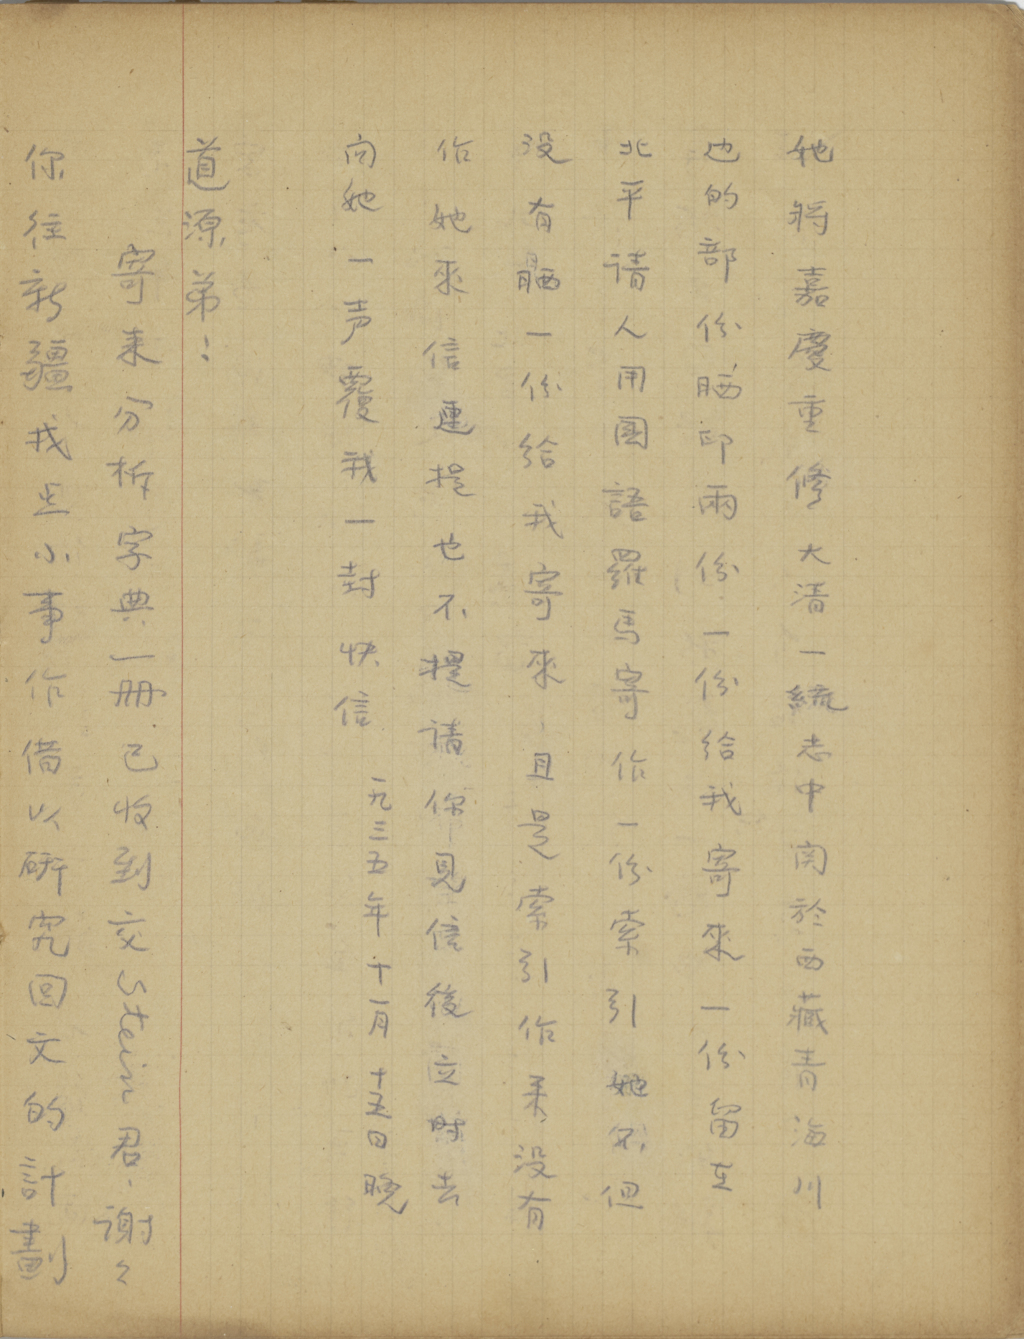 她將嘉慶重修大清一統志中関於西藏青海川
边的部份晒印兩份.一份給我寄來一份留在
北平請人用國語羅馬寄作一份索引她不但
没有晒一份給我寄來.且是索引作来没有
作她來信連提也不提請你見信後立時去
向她一声覆我一封快信 九三五年十一月十五日晚
道源弟：
寄来分析字典一冊.已收到交Stein君.谢々
你往新疆找点小事作借以研究回文的計劃